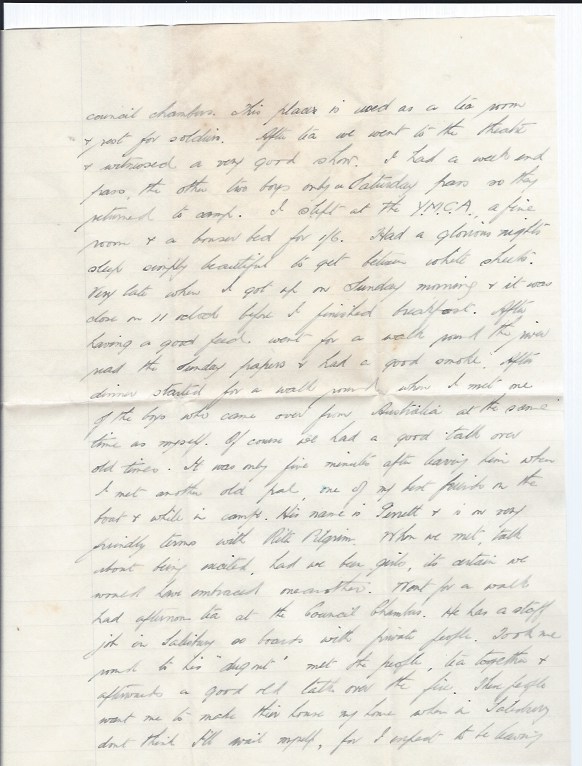 council chambers. This place is used as a tea room
& rest for soldiers. After tea we went to the theatre
& witnessed a very good show. I had a week end
pass, the other two boys only a Saturday pass so they
returned to camp. I slept at the Y.M.C.A., a fine
room & a bonser bed for 1/6. Had a glorious nights
sleep simply beautiful to get between white sheets.
Very late when I got up on Sunday morning & it was
close on 11 oclock before I finished breakfast. After
having a good feed went for a walk round the river
read the Sunday papers & had a good smoke. After
dinner started for a walk round when I met one
of the boys who came over from Australia at the same
time as myself. Of course we had a good talk over
old times. It was only five minutes after leaving him when
I met another old pal, one of my best friends on the
boat & while in camp. His name is Perrett & is on very
friendly terms with Rite Pilgrim. When we met, talk
about being excited, had we been girls, its certain we
would have embraced oneanother. Went for a walk
had afternoon tea at the Council Chambers. He has a staff
job in Salisbury so boards with private people. Took me
round to his "dugout" met the people, tea together &
afterwards a good old talk over the fire. These people
want me to make their house my home when in Salisbury
dont think I'll avail myself, for I expect to be leaving